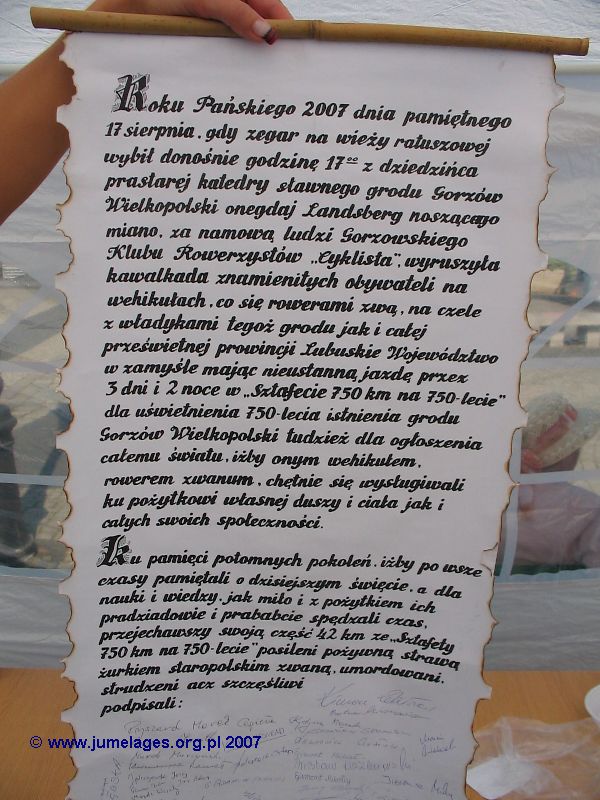 Roku Pańskiego 2007 dnia pamiętnego
17 sierpnia, gdy zegar na wieży ratuszowej
wybił donośnie godzinę 17ºº z dziedzińca
prastarej katedry sławnego grodu Gorzów
Wielkopolski onegdaj Landsberg noszącego
miano, za namową ludzi Gorzowskiego
Klubu Rowerzystów „Cyklista”, wyruszyła
kawalkada znamienitych obywateli na
wehikułach, co się rowerami zwą, na czele
z władykami tegoż grodu jak i całej
prześwietnej prowincji Lubuskie Województwo
w zamyśle mając nieustanną jazdę przez
3 dni i 2 noce w „Sztafecie 750 km na 750-lecie”
dla uświetnienia 750-lecia istnienia grodu
Gorzów Wielkopolski tudzież dla ogłoszenia
całemu światu, iżby onym wehikułem,
rowerem zwanum, chętnie się wysługiwali
ku pożytkowi własnej duszy i ciała jak i
całych swoich społeczności.
Ku pamięci potomnych pokoleń, iżby po wsze
czasy pamiętali o dzisiejszym święcie, a dla
nauki i wiedzy, jak miło i z pożytkiem ich
pradziadowie i prababcie spędzali czas,
przejechawszy swoją część 42 km ze „Sztafety
750 km na 750-lecie” posileni pożywną strawą
żurkiem staropolskim zwaną, umordowani,
strudzeni acz szczęśliwi
podpisali:
© www.jumelages.org.pl 2007